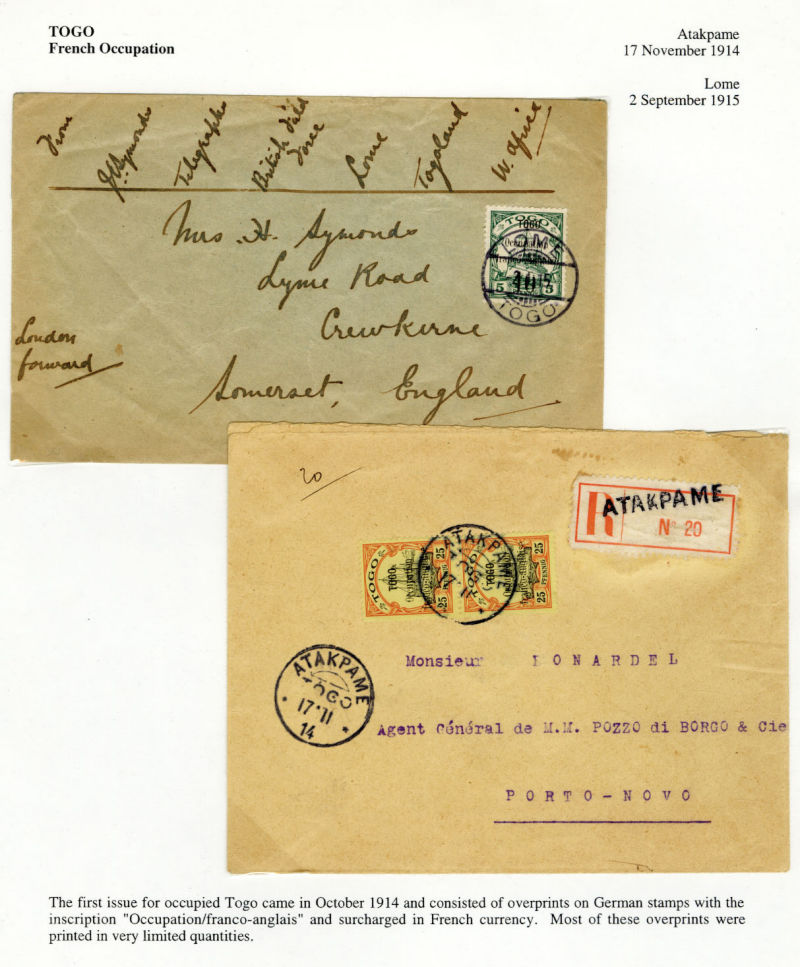 TOGO
French Occupation
Atakpame
17 November 1914
Lome
2 September 1915
From
Symonds
Telegraphs
British Field
Force
Lome
Togoland
W. Africa
Mrs. H. Symonds
Lyme Road
Crewkerne
Somerset, England
London
forward
TOGO
TOGO
5 10 5
LOME
TOGO
20
R ATAKPAME
No 20
TOGO
TOGO
Occupation
franco-anglaise
25 PFENNIG 25
TOGO
TOGO
25 PFENNIG 25
ATAKPAME
TOGO
ATAKPAME
TOGO
17 11
14
Monsieur BONARDEL
Agent Général de M.M. POZZO di BORGO & Cie
PORTO-NOVO
The first issue for occupied Togo came in October 1914 and consisted of overprints on German stamps with the
inscription "Occupation/franco-anglais" and surcharged in French currency. Most of these overprints were
printed in very limited quantities.